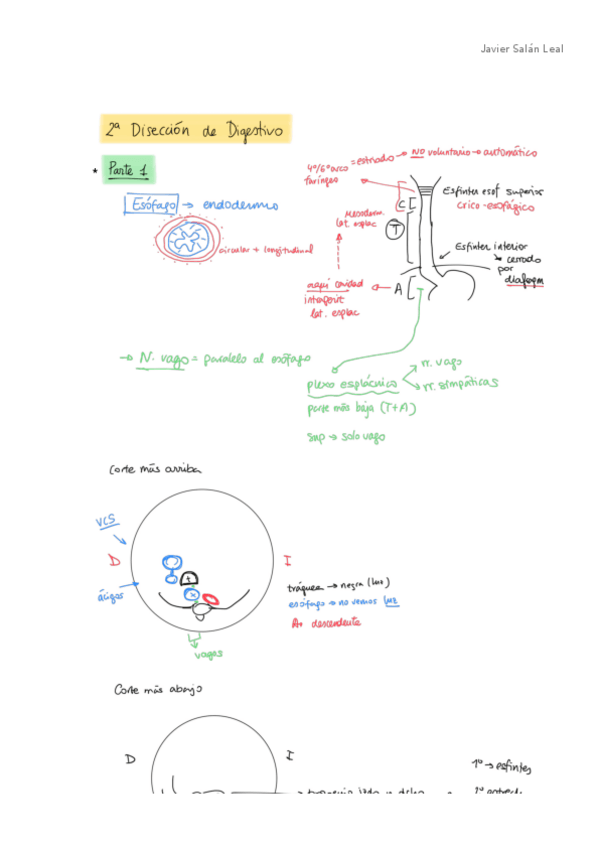 Javier Salán Leal
2ª Disección de Digestivo
* Parte 1
4º/6º arco faríngeo = estriado → NO voluntario → automático
Esófago → endodermo
circular + longitudinal
Mesoderm. lat. esplac
C
T
A
Esfínter esof superior
crico-esofágico
Esfínter inferior
cerrado
por
diafragm
aquí cavidad
interperit
lat. esplac
→ N. vago = paralelo al esófago
rr. vago
rr. simpáticas
plexo esplácnico
parte más baja (T+A)
sup → solo vago
Corte más arriba
VCS
D
I
ácigos
t
x
tráquea → negra (luz)
esófago → no vemos luz
A+ descendente
vagos
Corte más abajo
D
I
1º → esfínter